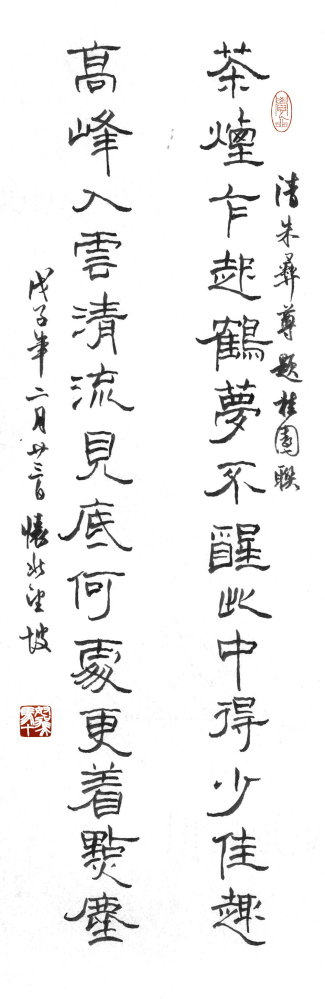 清朱彝尊題桂園聯
茶煙乍起鶴夢不醒此中得少佳趣
高峰入雲清流見底何處更着點塵
戊子年二月廿三日懷北望坡